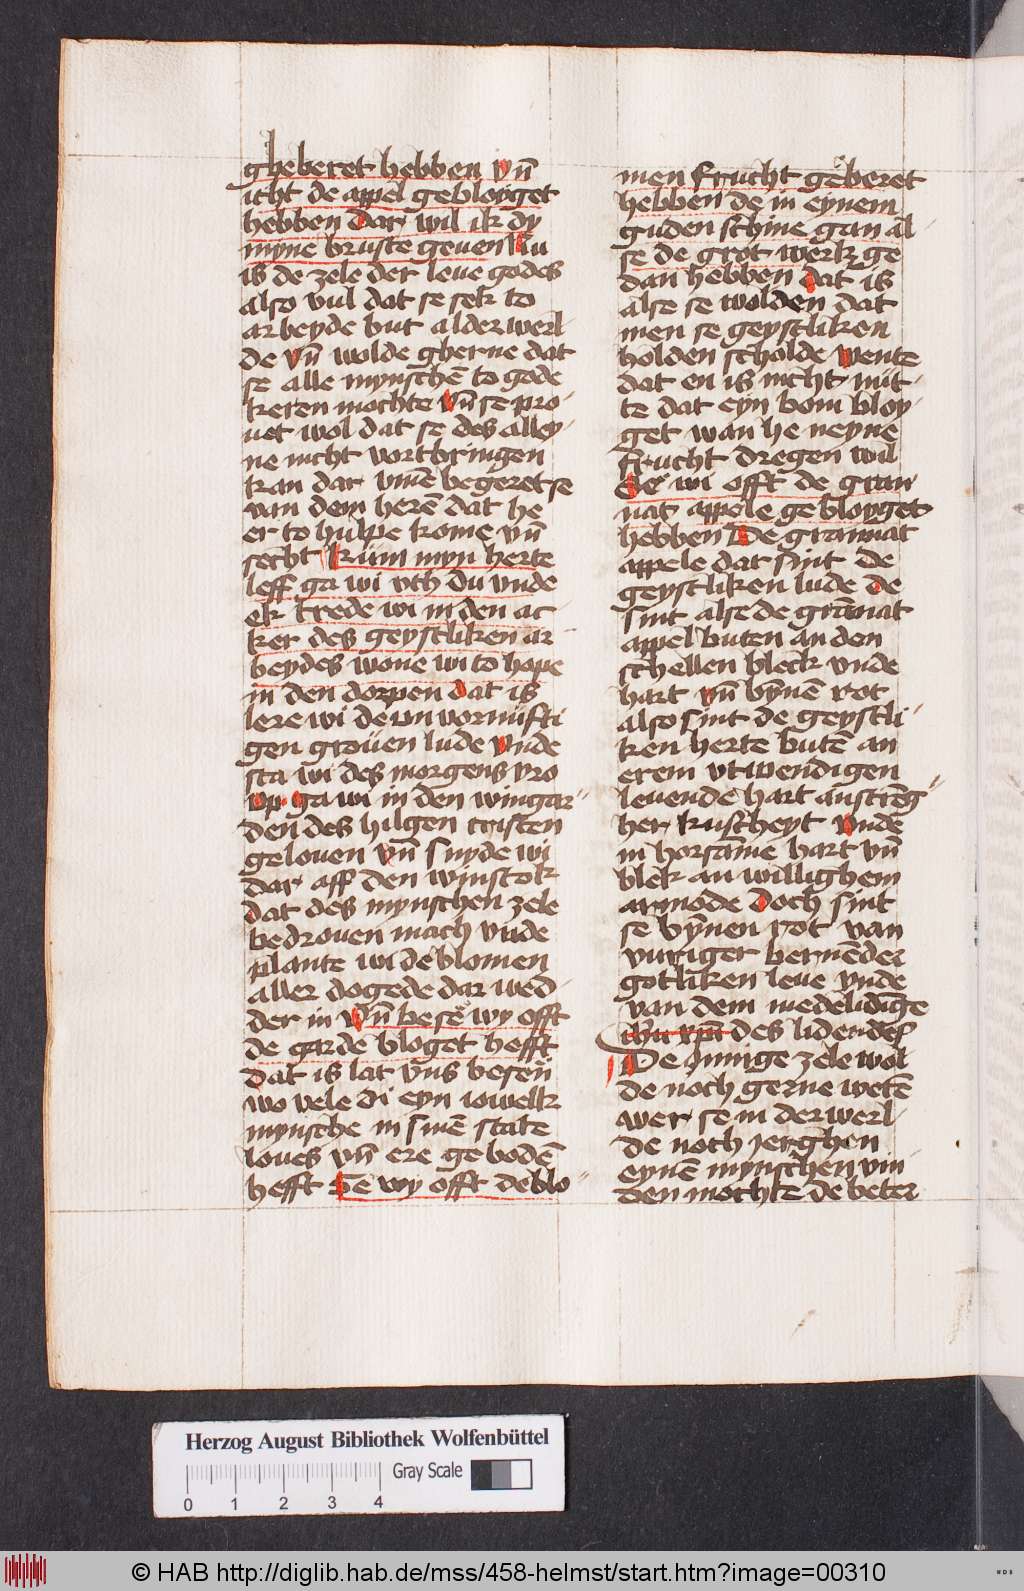 gheberet hebben vn̄
icht de appel gebloyget
hebben Dar wil ik dy
myne bruste geuen Nu
is de zele der leue godes
also vul dat se sek to
arbeyde but alder werl
de vn̄ wolde gherne dat
se alle mynschē to gode
keren mochte vn̄ se pro
uet wol dat se des alley
ne nicht vortbringen
kan dar vmē begeret se
van dem herē dat he
er to hulpe kome vn̄
secht kūm myn herte
leff ga wi vth du vnde
ek trede wi in den ac
ker des geystliken ar
beydes wone wi to hope
in den dorpen dat is
lere wi de vn vornüfti
gen groüen lude vnde
sta wi des morgens vro
vp ga wi in den wingar
den des hilgen cristen
gelouen vn̄ snyde wi
dar aff den winstok
dat des mynschen zele
bedrouen mach vnde
plante wi de blomen
aller dogede dar wed
der in vn̄ besē wy offt
de garde bloget hefft
dat is lat vns beseū
wo vele di eyn iowelk
mynsche in sinē state
loues vn̄ ere gebodē
hefft Se wy offt de blo
men frucht geberet
hebben de in eynem
guden schine gan al
se de grot werk ge
dan hebben dat is
alse se wolden dat
men se geystliken
holden scholde wente
dat en is nicht nüt
te dat eyn bom bloy
get wan he neyne
frucht dregen wil
Se wi offt de gran
nat appele gebloyget
hebben De grannat
appele dat sint de
geystliken lude de
sint alse de grānat
appel buten an den
schellen bleck vnde
hart vn̄ bȳnē rot
also sint de geystli
ken herte butē an
erem vtwendigen
leuende hart an strēg
her kuscheyt vnde
in horsāme hart vn̄
blek an willighem
armode Doch sint
se bȳnen rot van
vuriger bernēder
gotliken leue vnde
van dem medelidīge
ihu xpi des lidendes
De innige zele wol
de noch gerne wetē
wer se in der werl
de noch jerghen
eynē mynschen vin
den mochte de beter
Herzog August Bibliothek Wolfenbüttel
Gray Scale
0 1 2 3 4
© HAB http://diglib.hab.de/mss/458-helmst/start.htm?image=00310